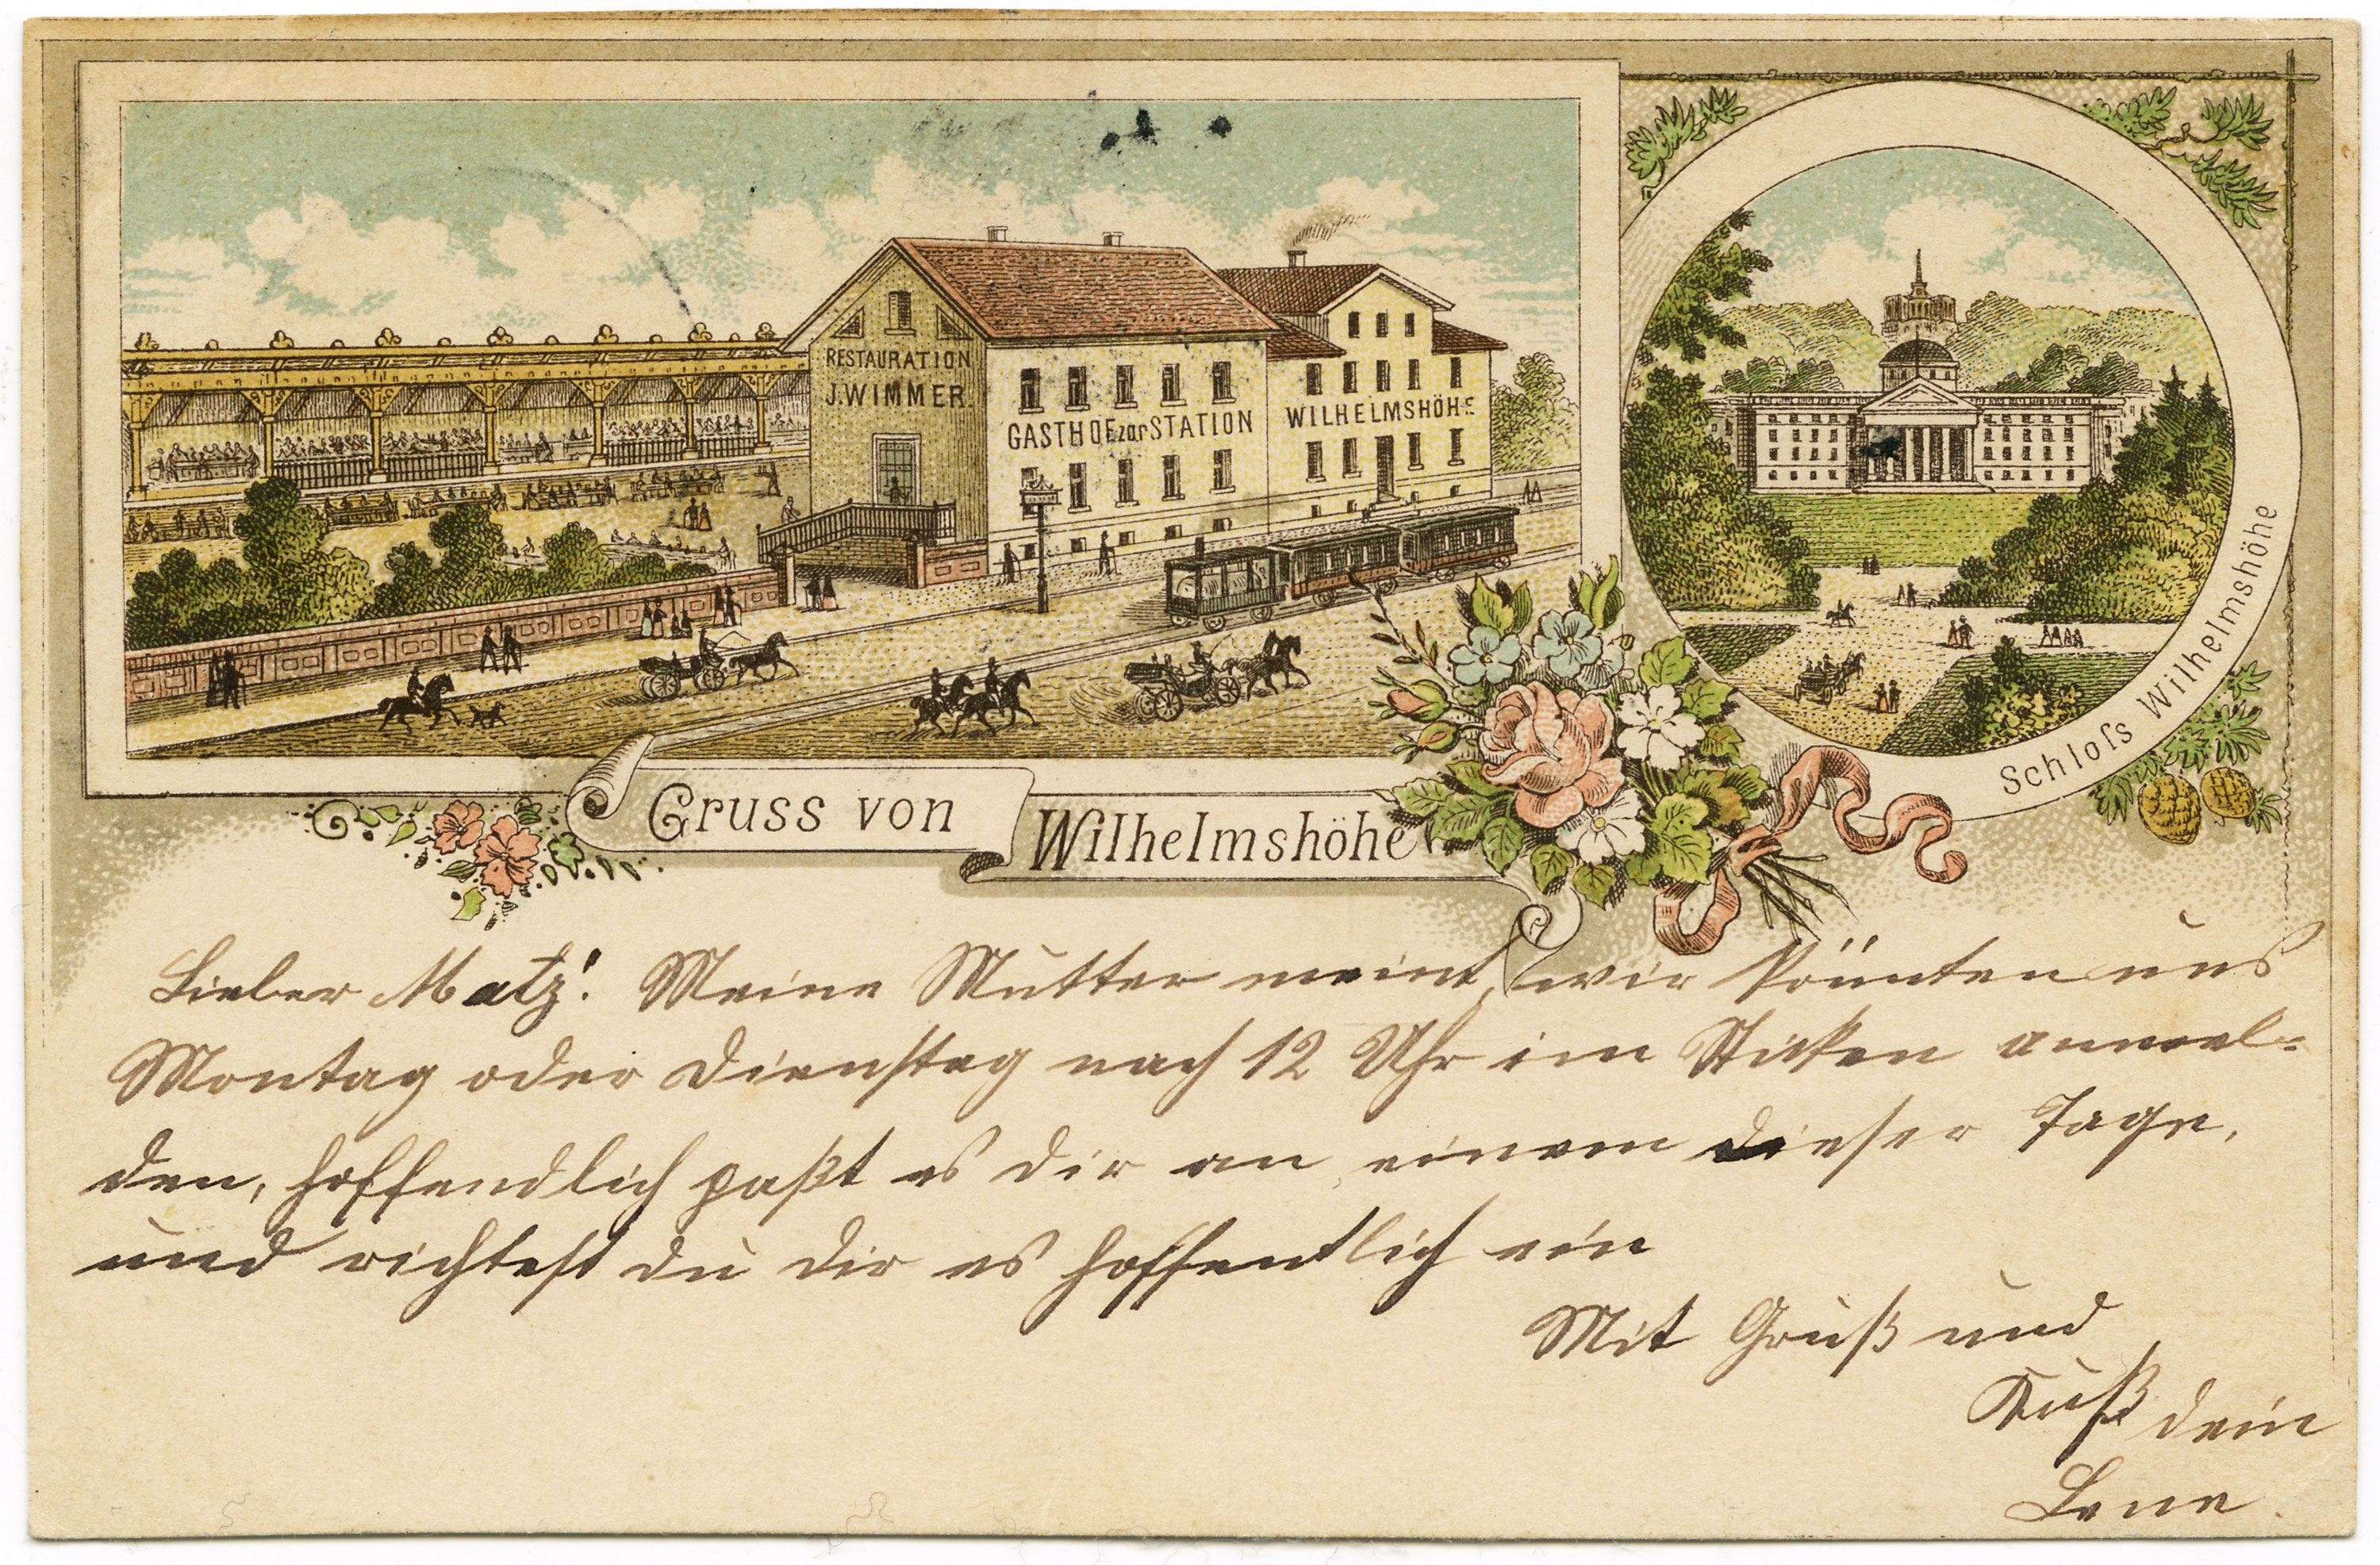 RESTAURATION
J. WIMMER.
GASTHOF zur STATION
WILHELMSHÖHE
Schloſs Wilhelmshöhe
Gruss von Wilhelmshöhe
Lieber Matz! Meine Mutter meint, wir könnten uns
Montag oder Dienstag nach 12 Uhr im Sticken anmel-
den, hoffendlich paßt es dir an einem dieser Tage,
und richtest du dir es hoffentlich ein
Mit Gruß und
Kuß dein
Lene.